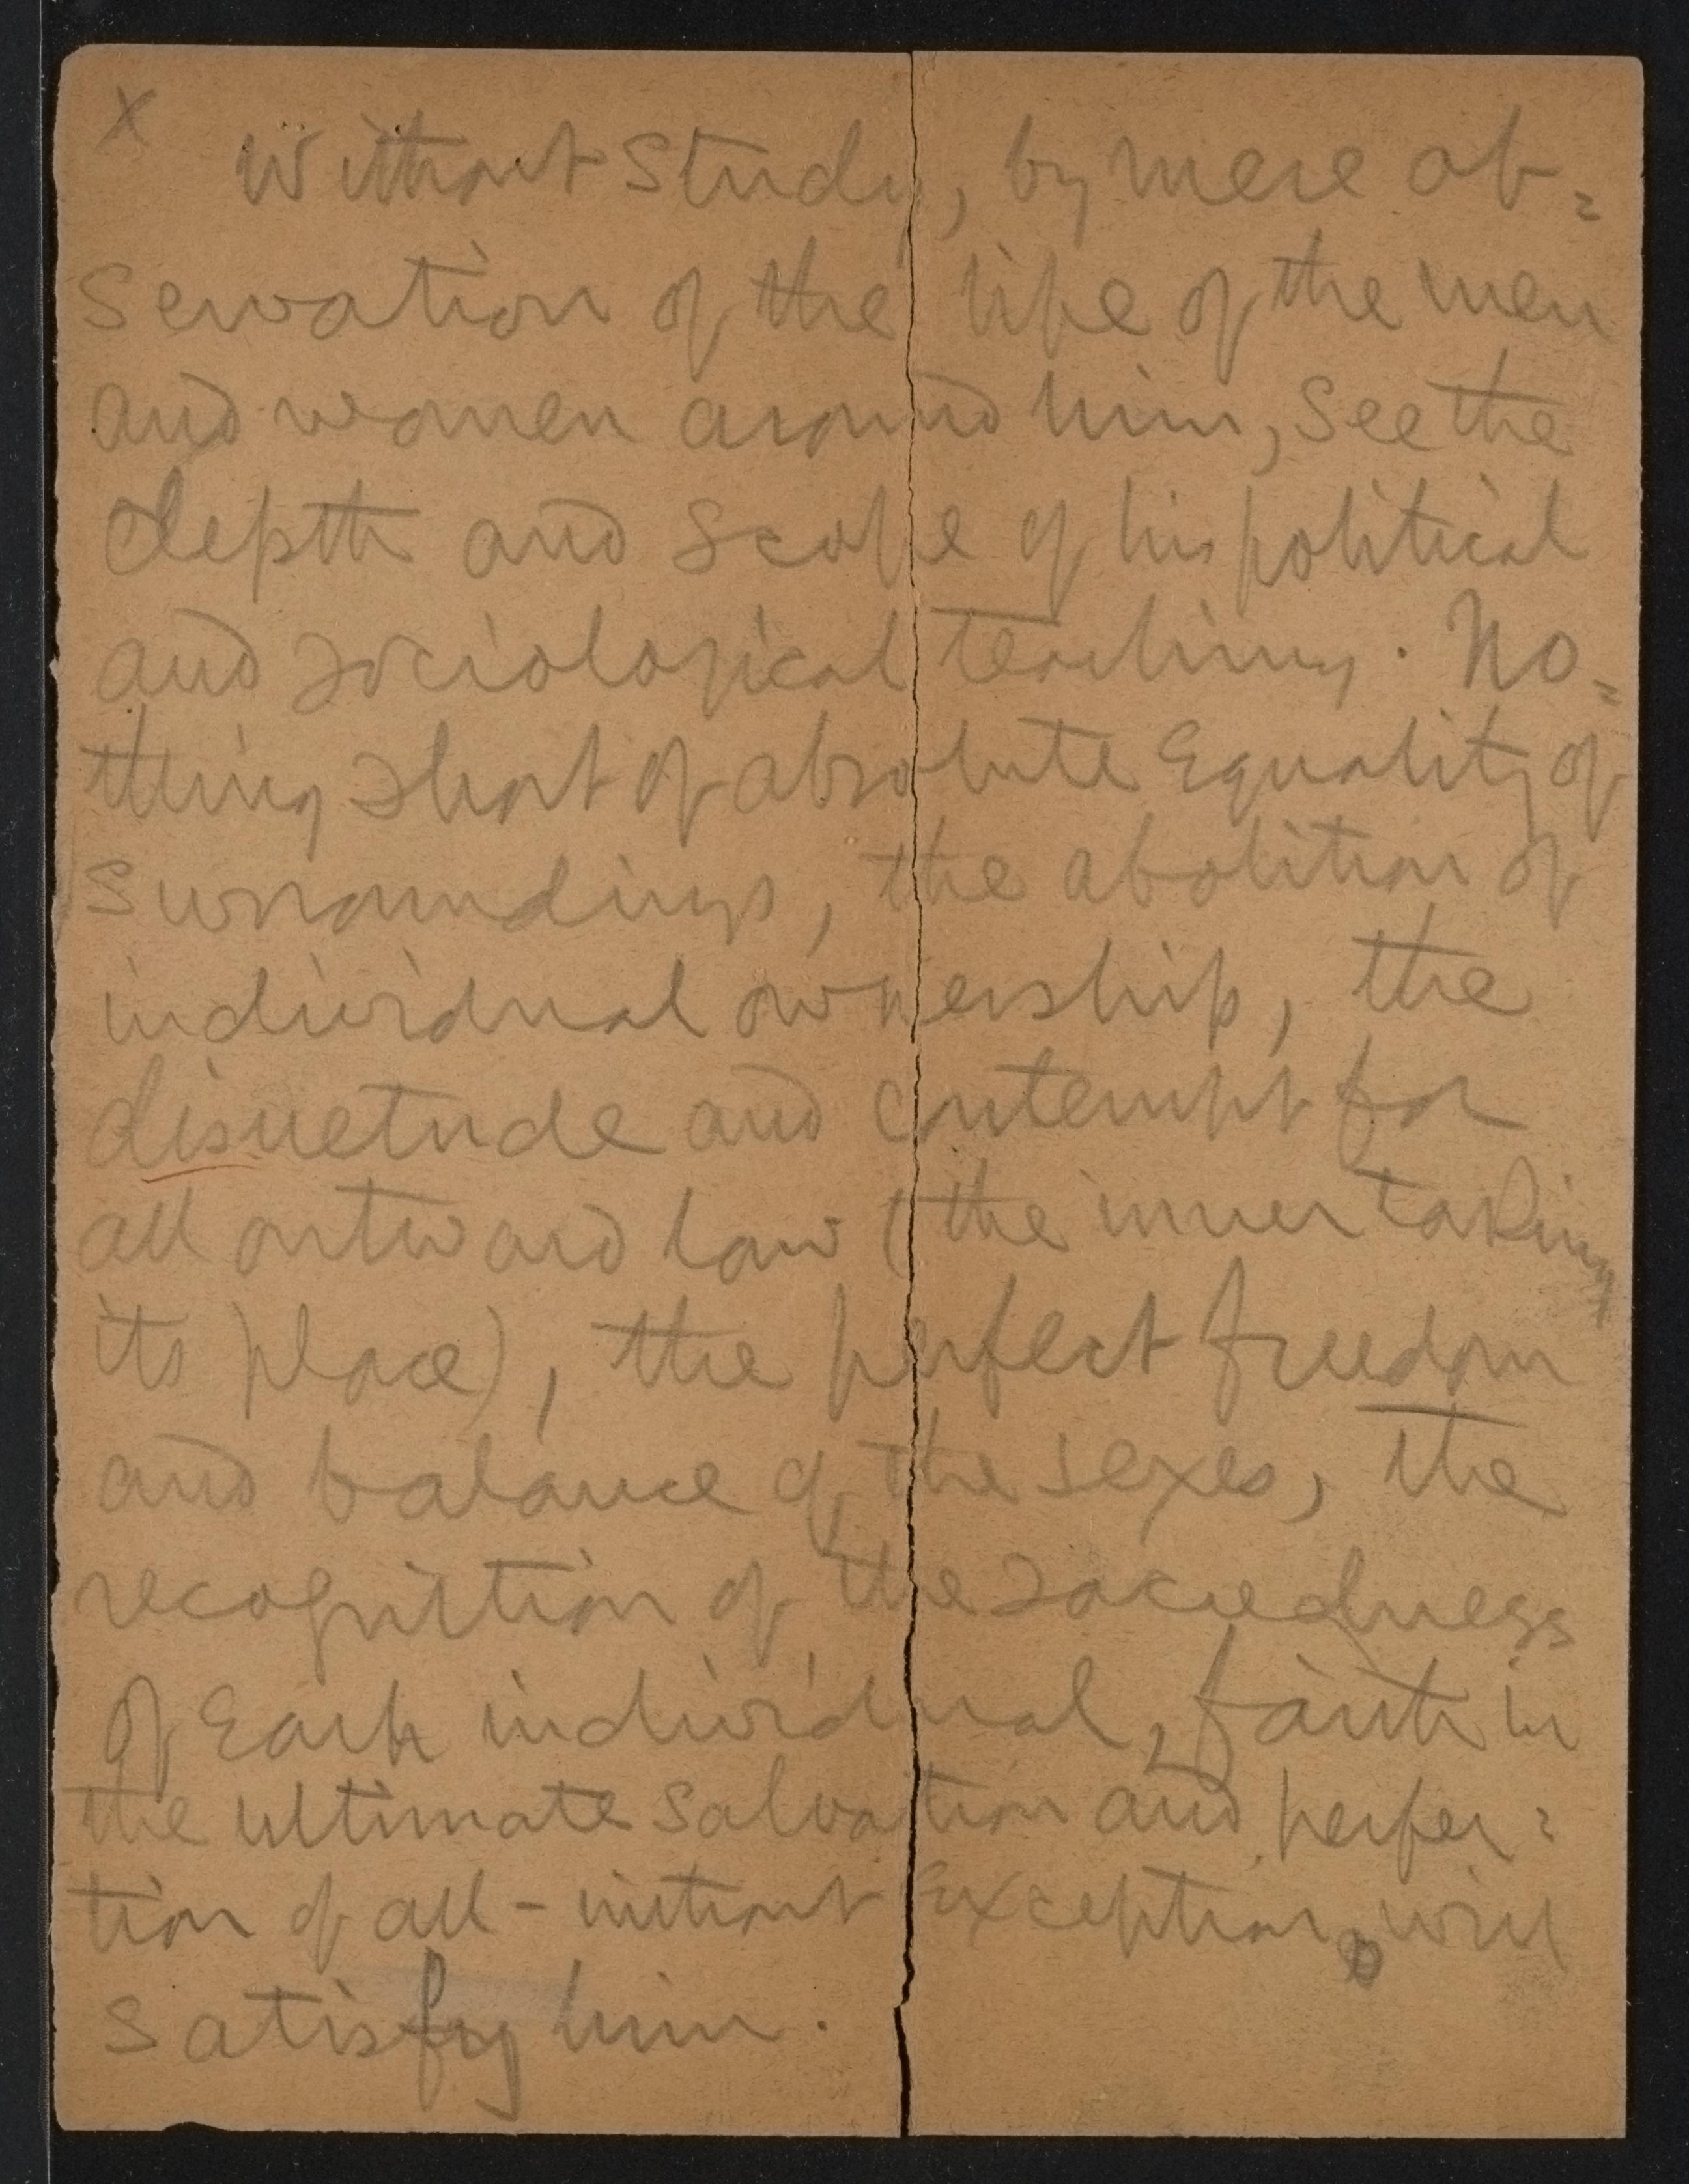 x
Without study, by mere ob=
servation of the life of the men
and women around him, see the
depth and scope of his political
and sociological teaching. No=
thing short of absolute Equality of
surroundings, the abolition of
individual ownership, the
disuetude and contempt for
all outward law (the inner taking
its place), the perfect freedom
and balance of the sexes, the
recognition of the sacredness
of Each individual, faith in
the ultimate salvation and perfec=
tion of all - without Exception, will
satisfy him.